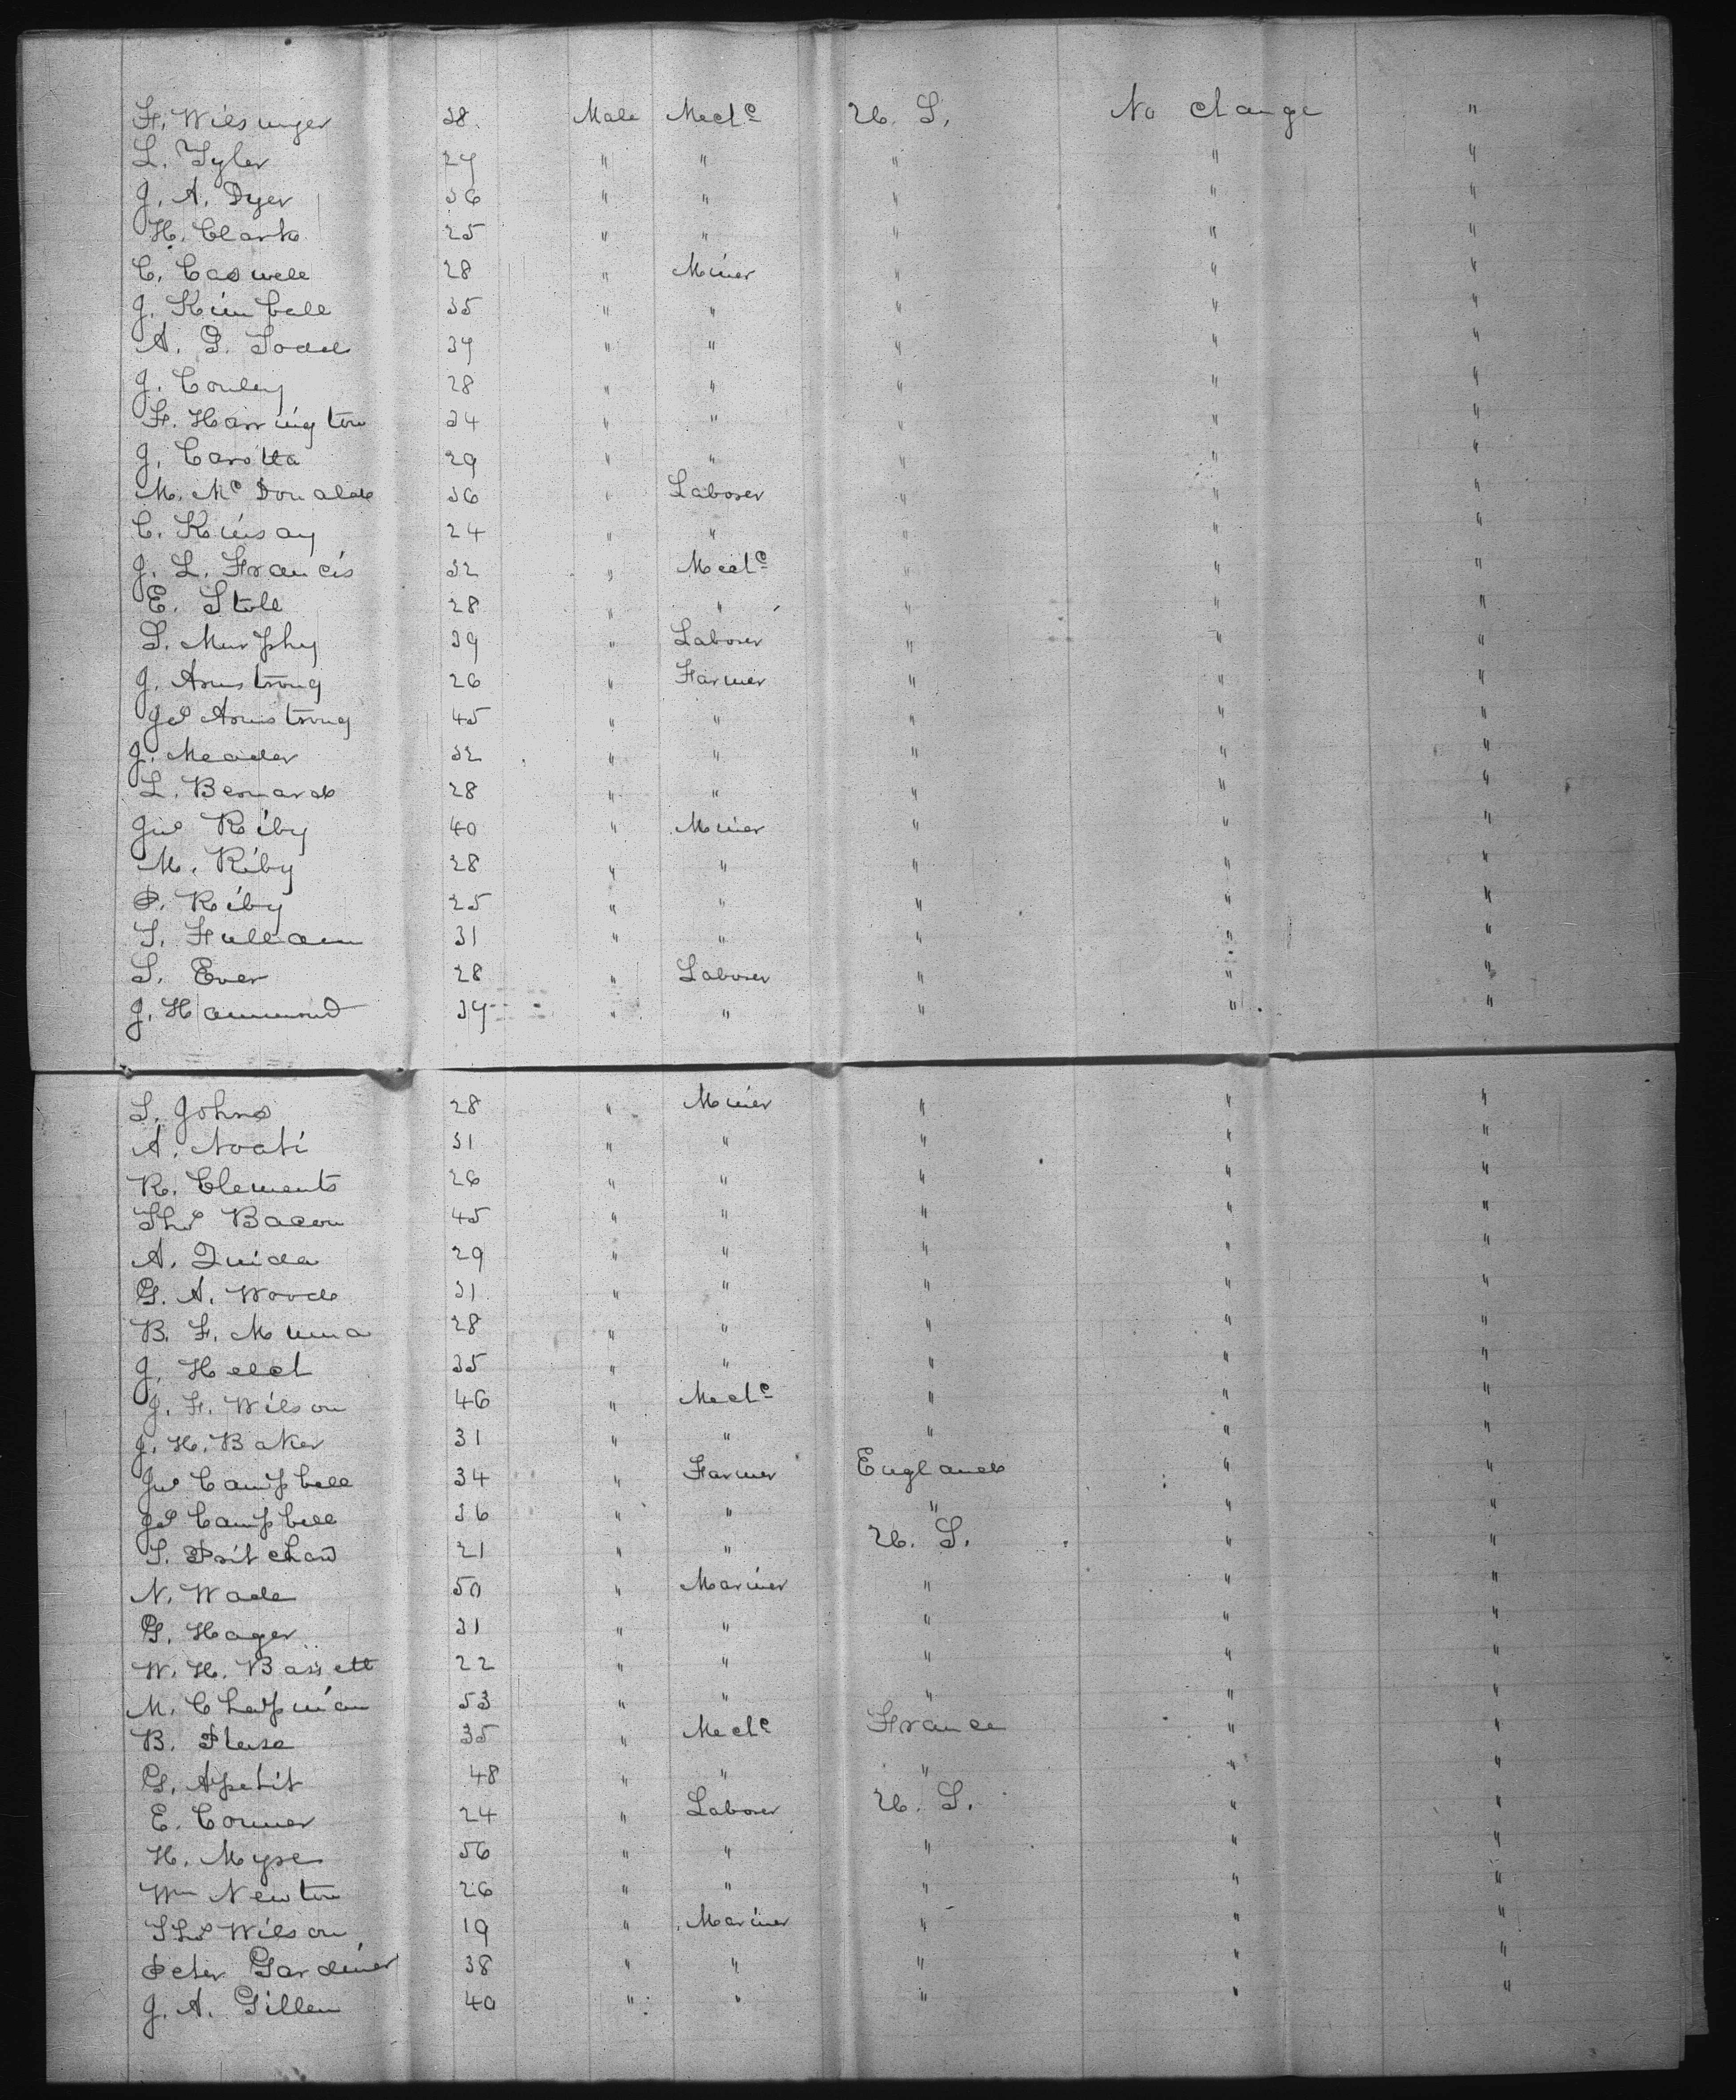 F. Wilsunger 38 Male Mechc U. S. No change "
L. Tyler 27 " " " " "
J. A. Dyer 36 " " " " "
H. Clark 25 " " " " "
C. Caswell 28 " Miner " " "
J. Kimball 35 " " " " "
A. G. Todd 37 " " " " "
J. Conley 28 " " " " "
F. Harrington 34 " " " " "
J. Carotta 29 " " " " "
M. Mc Donald 36 " Laborer " " "
C. Kinsay 24 " " " " "
J. L. Francis 32 " Mechc " " "
E. Stoll 28 " " " " "
S. Murphy 39 " Laborer " " "
J. Armstrong 26 " Farmer " " "
Jas Armstrong 45 " " " " "
J. Meader 32 " " " " "
L. Bernard 28 " " " " "
Jno Riby 40 " Miner " " "
M. Riby 28 " " " " "
P. Riby 25 " " " " "
T. Fullam 31 " " " " "
S. Ever 28 " Laborer " " "
J. Hammond 37 " " " " "
S. Johns 28 " Miner " " "
A. Noati 31 " " " " "
R. Clements 26 " " " " "
Thos Bacon 45 " " " " "
A. 29 " " " " "
G. A. Wood 31 " " " " "
B. F. Mumma 28 " " " " "
J. 35 " " " " "
J. F. Wilson 46 " Mechc " " "
J. H. Baker 31 " " " " "
Jno Campbell 34 " Farmer England " "
Jas Campbell 36 " " " " "
T. Pritchard 21 " " U. S. " "
N. Wade 50 " Mariner " " "
G. Hager 31 " " " " "
W. H. Bassett 22 " " " " "
M. Chapman 53 " " " " "
B. 35 " Mechc France " "
G. Apetit 48 " " " " "
E. Conner 24 " Laborer U. S. " "
H. Myse 56 " " " " "
Wm Newton 26 " " " " "
Thos Wilson 19 " Mariner " " "
Peter Gardiner 38 " " " " "
J. A. Gillen 40 " " " " "